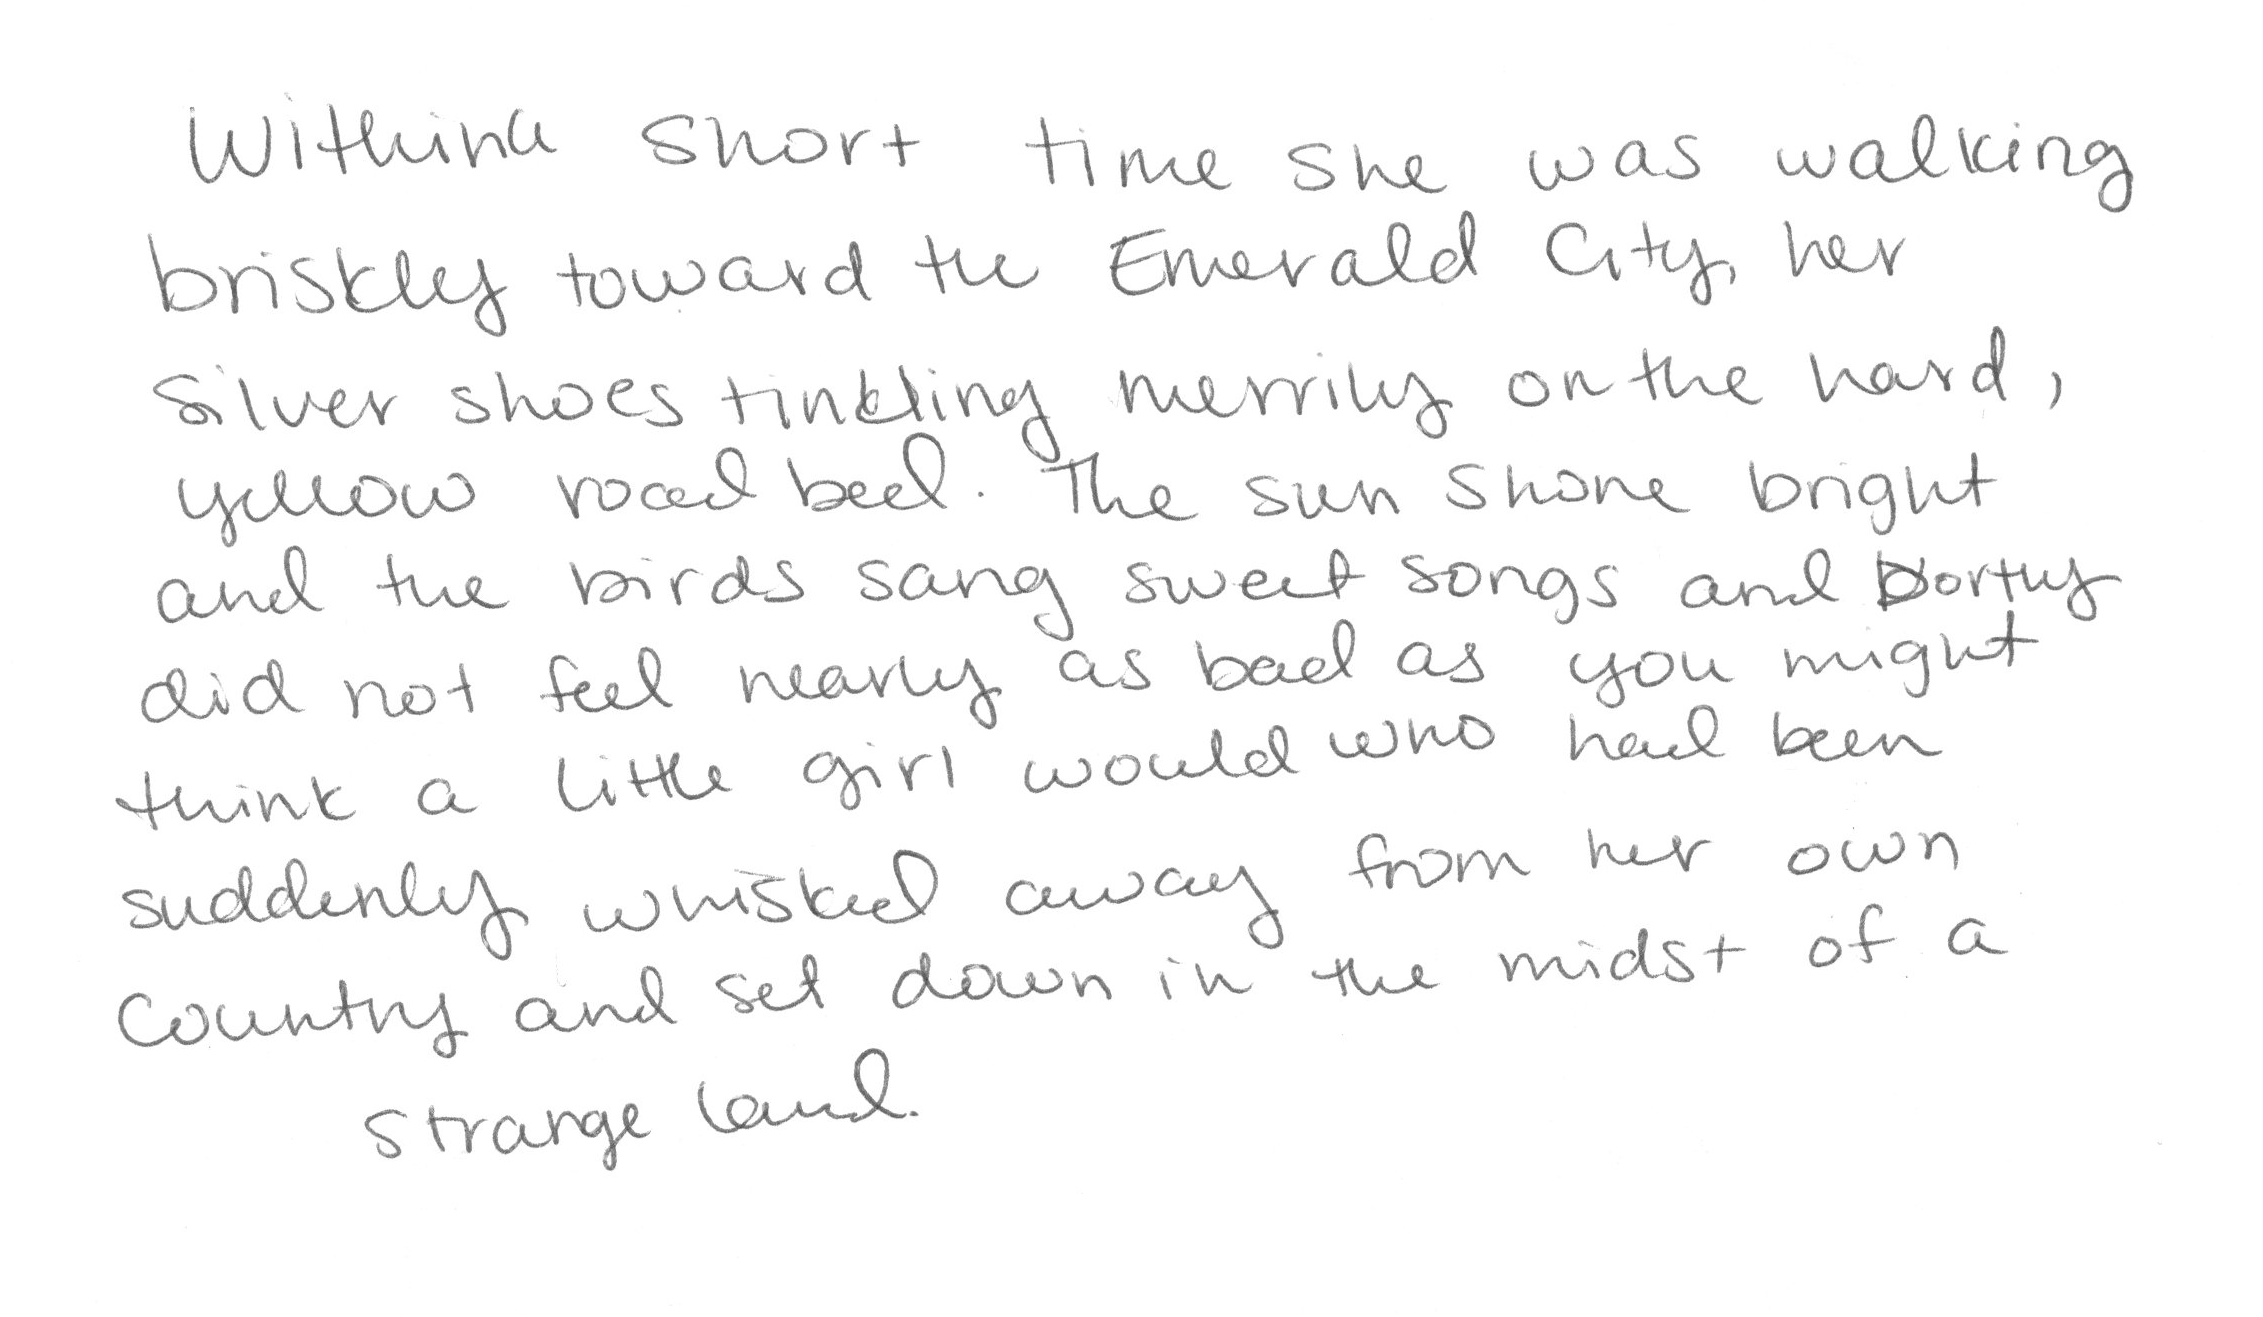 Within a short time she was walking
briskly toward the Emerald City, her
Silver shoes tinkling merrily on the hard,
yellow road bed. The sun shone bright
and the birds sang sweet songs and Dorthy
did not feel nearly as bad as you might
think a little girl would who had been
suddenly whisked away from her own
Country and set down in the midst of a
strange land.